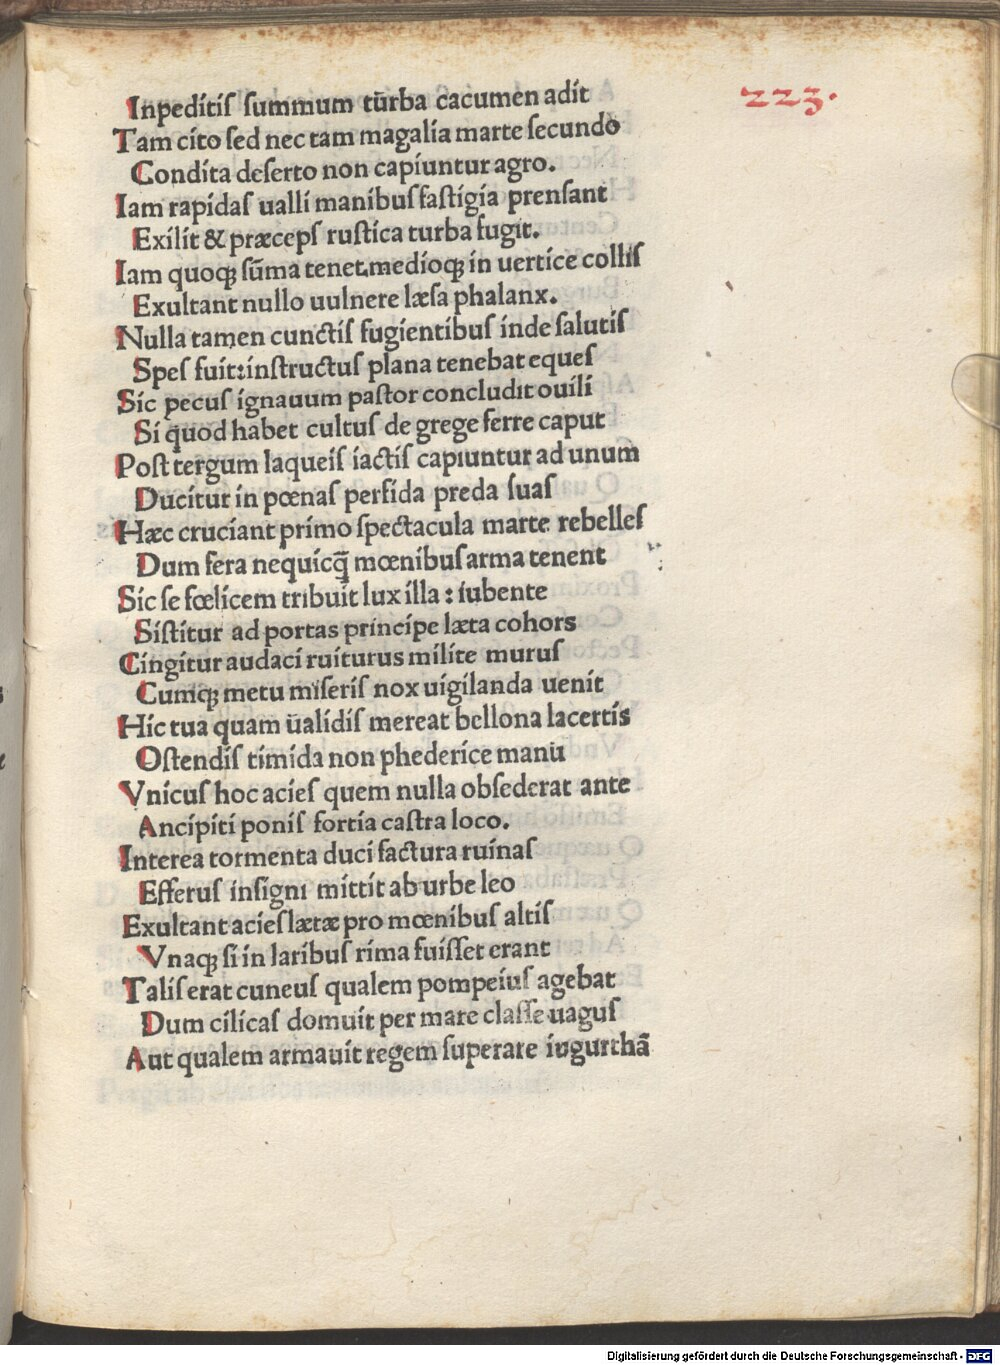 223.
Inpeditiſ ſummum tūrba cacumen adit
Tam cito ſed nec tam magalia marte ſecundo
Condita deſerto non capiuntur agro.
Iam rapidaſ ualli manibuſ faſtigia prenſant
Exilit & præcepſ ruſtica turba fugit.
Iam quoqꝫ ſūma tenet.medioqꝫ in uertice colliſ
Exultant nullo uulnere læſa phalanx.
Nulla tamen cunctiſ fugientibuſ inde ſalutiſ
Speſ fuit:inſtructuſ plana tenebat equeſ
Sic pecuſ ignauum paſtor concludit ouili
Si quod habet cultuſ de grege ferre caput
Poſt tergum laqueiſ iactiſ capiuntur ad unum
Ducitur in pœnaſ perfida preda ſuaſ
Hæc cruciant primo ſpectacula marte rebelleſ
Dum fera nequicq̄ mœnibuſ arma tenent
Sic ſe fœlicem tribuit lux illa : iubente
Siſtitur ad portas principe læta cohors
Cingitur audaci ruiturus milite muruſ
Cumqꝫ metu miſeriſ nox uigilanda uenit
Hic tua quam ūalidiſ mereat bellona lacertiſ
Oſtendiſ timida non phederice manu
Vnicuſ hoc acieſ quem nulla obſederat ante
Ancipiti poniſ fortia caſtra loco.
Interea tormenta duci factura ruinaſ
Efferuſ inſigni mittit ab urbe leo
Exultant acieſ lætæ pro mœnibuſ altiſ
Vnaqꝫ ſi in laribuſ rima fuiſſet erant
Taliſ erat cuneuſ qualem pompeiuſ agebat
Dum cilicaſ domuit per mare claſſe uaguſ
Aut qualem armauit regem ſuperare iugurthā
Digitalisierung gefördert durch die Deutsche Forschungsgemeinschaft - DFG